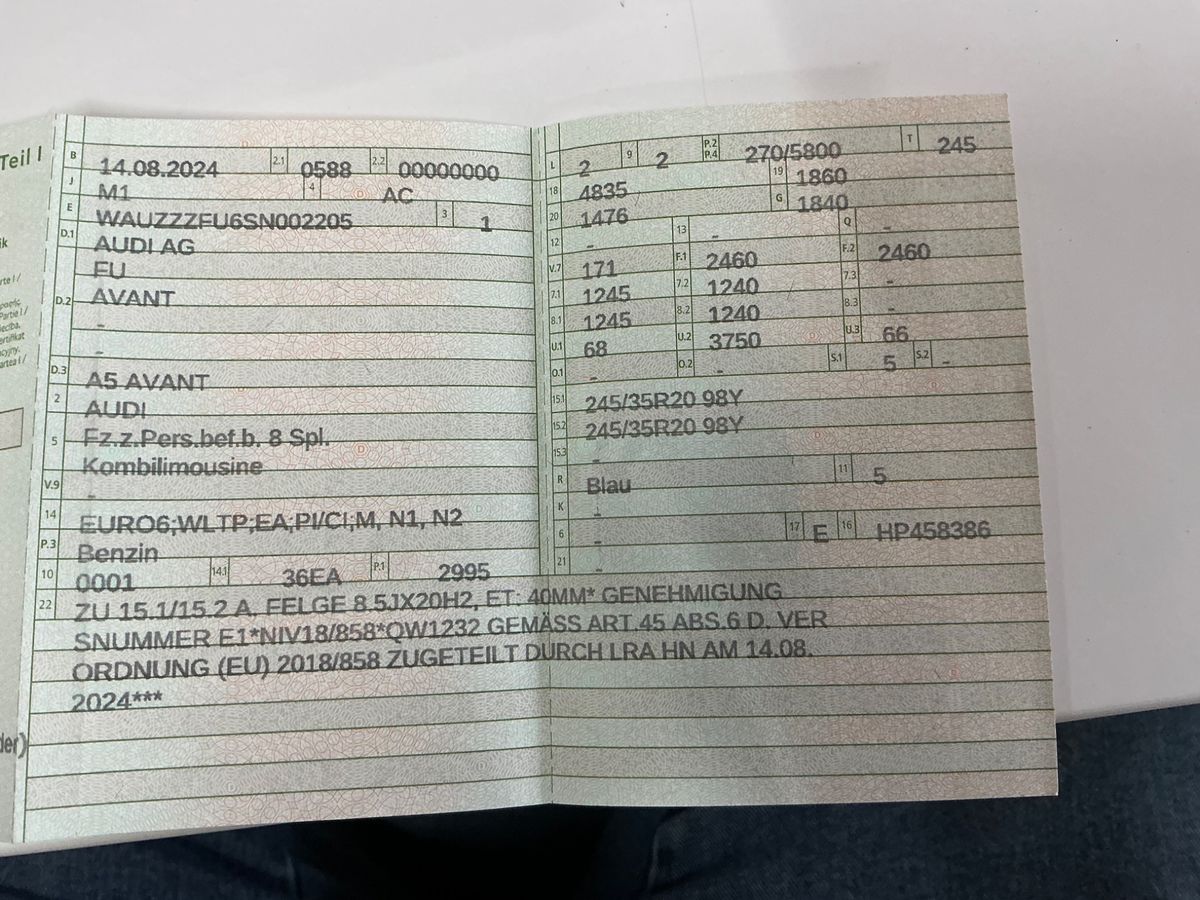 Teil I
B 14.08.2024 2.1 0588 2.2 00000000
J M1 4 AC
E WAUZZZFU6SN002205 3 1
D.1 AUDI AG
FU
D.2 AVANT
-
-
D.3 A5 AVANT
2 AUDI
5 Fz.z.Pers.bef.b. 8 Spl.
Kombilimousine
V.9 -
14 EURO6;WLTP;EA;PI/CI;M, N1, N2
P.3 Benzin
10 0001 14.1 36EA P.1 2995
L 2 9 2 P.2 P.4 270/5800 T 245
18 4835 19 1860
20 1476 G 1840
12 - 13 - Q -
V.7 171 F.1 2460 F.2 2460
7.1 1245 7.2 1240 7.3 -
8.1 1245 8.2 1240 8.3 -
U.1 68 U.2 3750 U.3 66
O.1 - O.2 - S.1 5 S.2 -
15.1 245/35R20 98Y
15.2 245/35R20 98Y
15.3 -
R Blau 11 5
K -
6 - 17 E 16 HP458386
21 -
22 ZU 15.1/15.2 A. FELGE 8.5JX20H2, ET: 40MM* GENEHMIGUNG
SNUMMER E1*NIV18/858*QW1232 GEMÄSS ART.45 ABS.6 D. VER
ORDNUNG (EU) 2018/858 ZUGETEILT DURCH LRA HN AM 14.08.
2024***